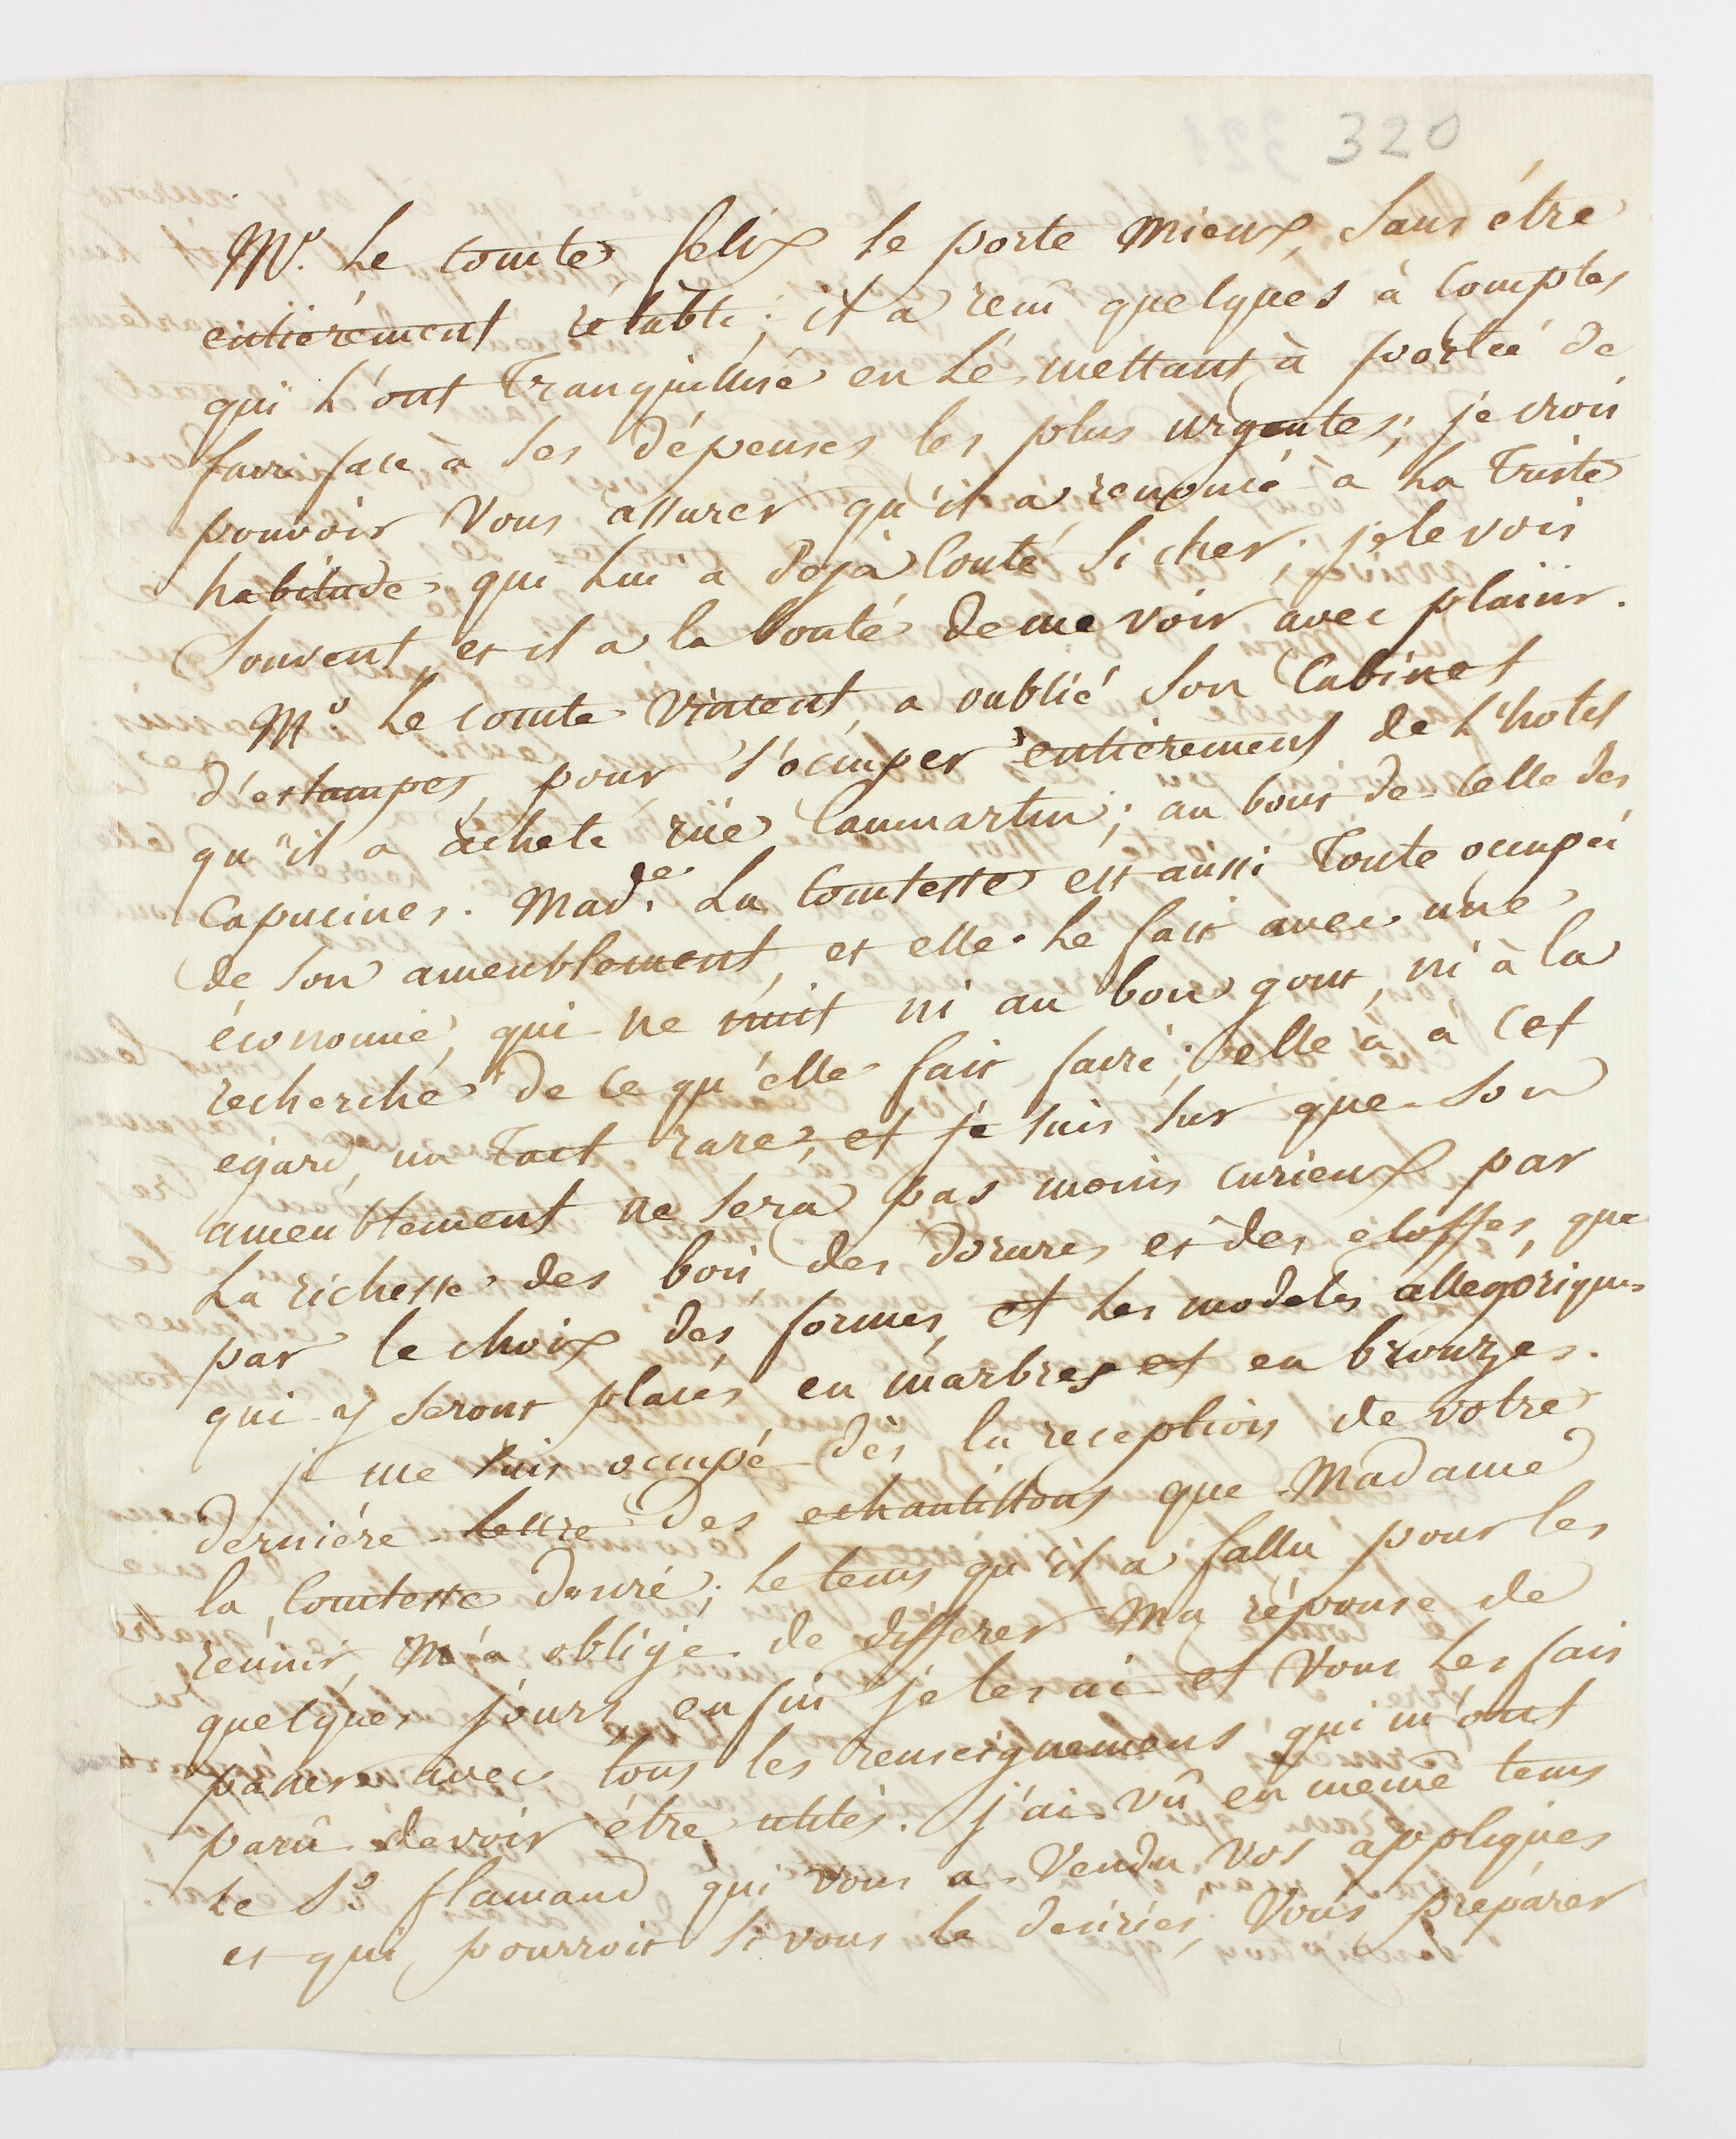 320
Mr. Le comte felix se porte mieux, sans être
entiérement rétabli; il a reçu quelques à comptes
qui l'ont tranquillisé en le mettant à portée de
faire face à ses dépenses les plus urgentes; je crois
pouvoir vous assurer qu'il a renoncé à la triste
habitude qui lui a deja couté si cher; je le vois
souvent, et il a la bonté de me voir avec plaisir.
Mr. Le comte vincent, a oublié son cabinet
d'estampes, pour s'ocuper entierement de l'hotel
qu'il a acheté rüe Caumartin; au bout de celle des
Capucines. Made. La comtesse est aussi toute ocupée
de son ameublement, et elle le fait avec une
économie, qui ne nuit ni au bon gout, ni à la
recherche de ce qu'elle fait faire; elle à à cet
egard, un tact rare, et je suis sur que son
ameublement ne sera pas moins curieux par
la richesse des bois, des dorures et des étoffes, que
par le choix des formes, et les modeles allegoriques
qui y seront placés en marbres et en bronzes.
je me suis ocupé dès la reception de votre
derniére lettre des echantillons que Madame
la Comtesse desire; le tems qu'il a fallu pour les
réunir, m'a obligé de differer ma réponse de
quelques jours, enfin je les ai et vous les fais
passer avec tous les renseignemens qui m'ont
paru devoir être utiles. j'ai vû en meme tems
le Sr. flamand qui vous a vendu vos appliques
et qui pourroit si vous le desiriés, vous préparer